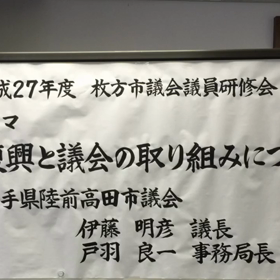 成27年度 枚方市議会議員研修会
マ
復興と議会の取り組みにつ
手県陸前高田市議会
伊藤 明彦 議長
戸羽 良一 事務局長